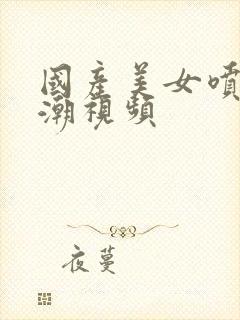 國產美女噴
潮視頻
夜蔓